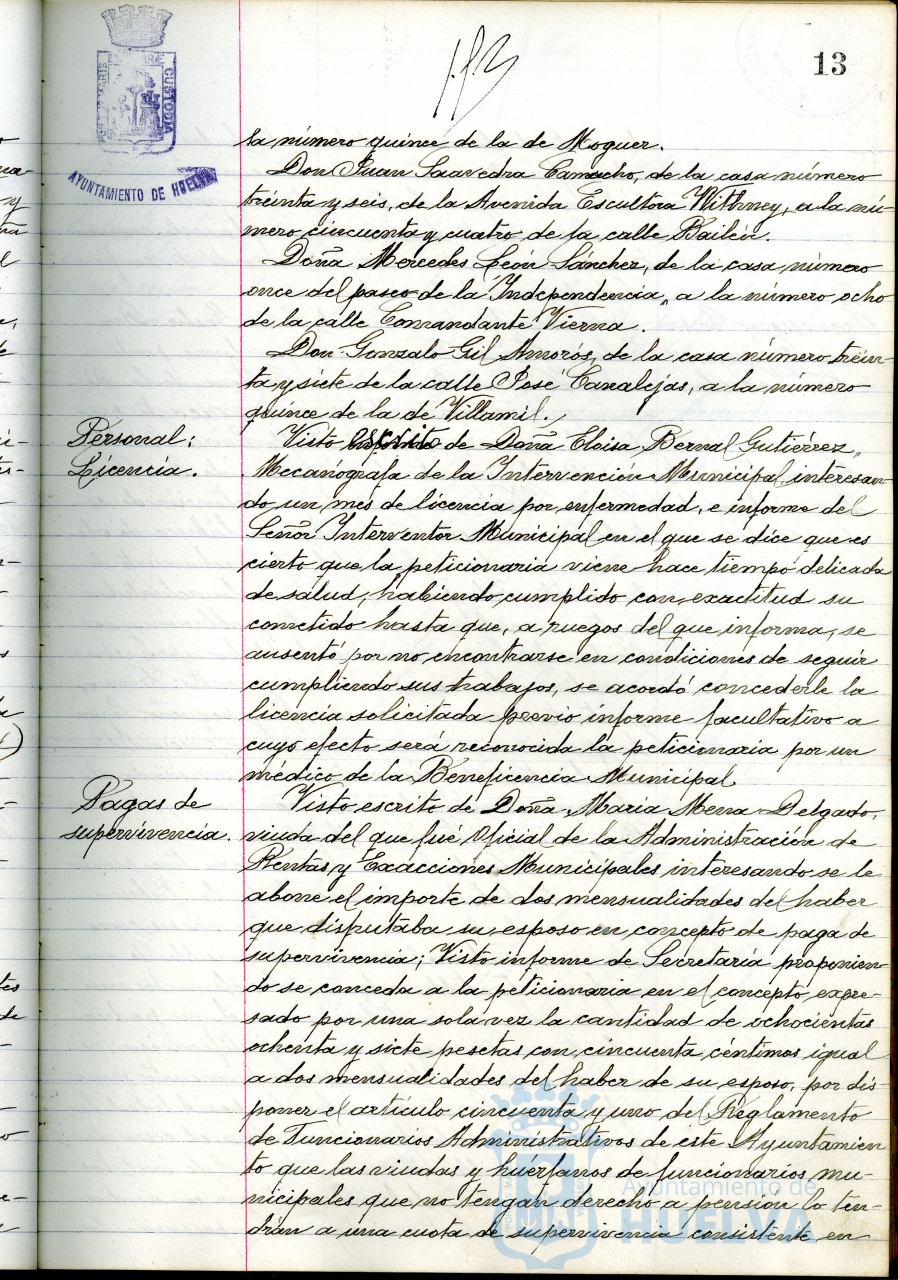 13
AYUNTAMIENTO DE HUELVA
CUSTODIA
ta número quince de la de Moguer.
Don Juan Saavedra Camacho, de la casa número
treinta y seis, de la Avenida Escultora Withney, a la nú-
mero cincuenta y cuatro de la calle Bailén.
Doña Mercedes León Sánchez, de la casa número
once del paseo de la Independencia, a la número ocho
de la calle Comandante Vierna.
Don Gonzalo Gil Amorós, de la casa número trein-
ta y siete de la calle José Canalejas, a la número
quince de la de Villamil.
Personal:
Licencia.
Visto escrito de Doña Eloisa Bernal Gutiérrez,
Mecanografa de la Intervención Municipal interesan-
do un mes de licencia por enfermedad, e informe del
Señor Interventor Municipal en el que se dice que es
cierto que la peticionaria viene hace tiempo delicada
de salud, habiendo cumplido con exactitud su
cometido hasta que, a ruegos del que informa, se
ausentó por no encontrarse en condiciones de seguir
cumpliendo sus trabajos, se acordó concederle la
licencia solicitada previo informe facultativo a
cuyo efecto será reconocida la peticionaria por un
médico de la Beneficencia Municipal
Pagas de
supervivencia.
Visto escrito de Doña Maria Mena Delgado,
viuda del que fué Oficial de la Administración de
Rentas y Exacciones Municipales interesando se le
abone el importe de dos mensualidades del haber
que disfrutaba su esposo en concepto de paga de
supervivencia; Visto informe de Secretaría proponien-
do se conceda a la peticionaria en el concepto expre-
sado por una sola vez la cantidad de ochocientas
ochenta y siete pesetas con cincuenta céntimos igual
a dos mensualidades del haber de su esposo, por dis-
poner el artículo cincuenta y uno del Reglamento
de Funcionarios Administrativos de este Ayuntamien-
to que las viudas y huérfanos de funcionarios mu-
nicipales que no tengan derecho a pensión lo ten-
drán a una cuota de supervivencia consistente en
Ayuntamiento de
HUELVA